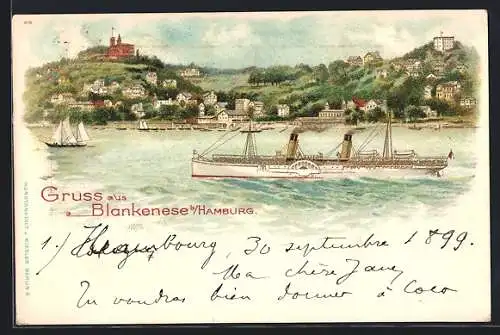 Gruss aus
Blankenese b/HAMBURG.
1.) Hambourg, 30 septembre 1899.
Ma chère Jany
Tu voudras bien donner à Coco